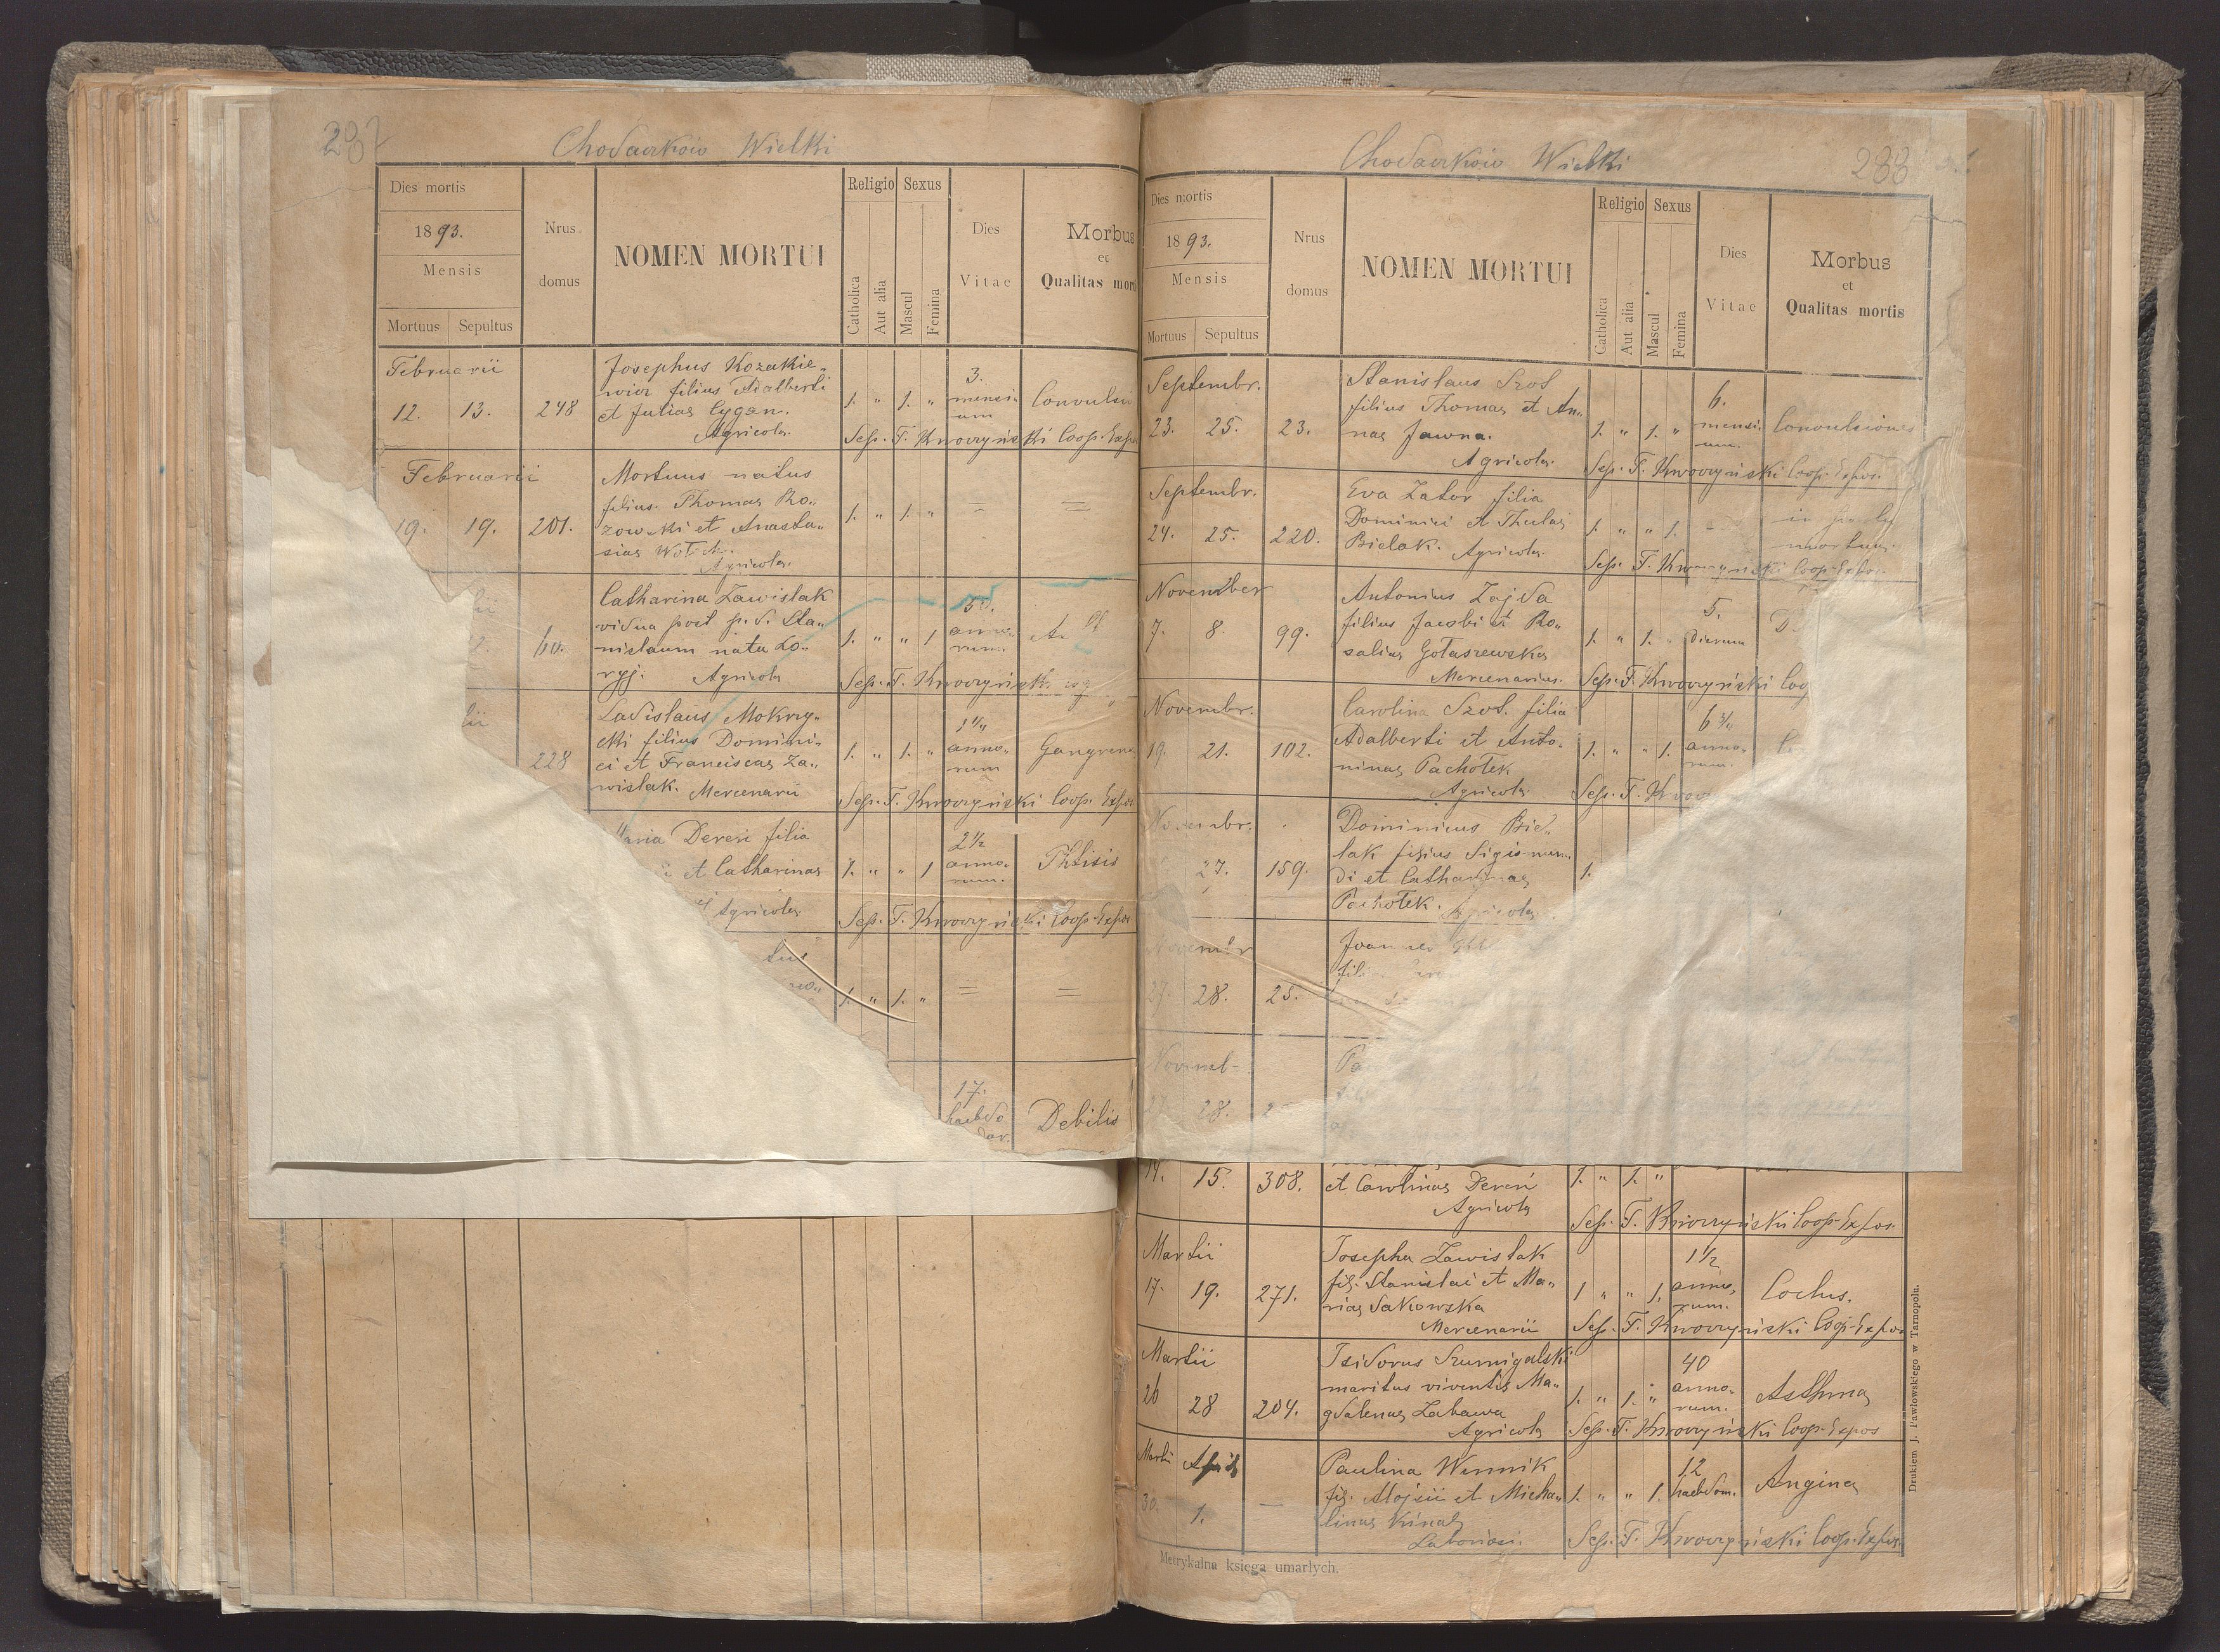 287
Chodaczków Wielki
Dies mortis
1893.
Mensis
Mortuus Sepultus
Nrus domus
NOMEN MORTUI
Religio Sexus
Catholica
Aut alia
Mascul
Femina
Dies Vitae
Morbus
et
Qualitas mort
Februarii
12. 13. 248
Josephus Kozakie„
wicz filius Adalberti
et Julias Cygan.
Agricola.
1. „ 1. „
3. mensi„
um
Convulsi
Sep. F. Kwoczyński Coop. Expo
Februarii
19. 19. 201.
Mortuus natus
filius Thomas Ro„
zowski et Anasta„
sias
Agricola.
1. „ 1. „ = =
60.
Catharina Zawislak
vidua post p. d. Sta„
nislaum nata Lo„
ryj. Agricola
1. „ „ 1
anno„
rum.
Sep. F. Kwoczyński
228
Ladislaus Mokrzy„
cki filius Domini„
ci et Franciscas Za„
wislak. Mercenarii
1. „ 1. „
1 1/4
anno„
rum
Gangrena
Sep. F. Kwoczyński Coop. Expo
Maria Dereń filia
et Catharinas
Agricola
1. „ „ 1
2 1/2
anno„
rum.
Phtisis
Sep. F. Kwoczyński Coop. Expos.
tus
1. „ 1. „ = =
17.
haebdo
dar.
Debilis
Chodaczków Wielki
288
Dies mortis
1893.
Mensis
Mortuus Sepultus
Nrus domus
NOMEN MORTUI
Religio Sexus
Catholica
Aut alia
Mascul
Femina
Dies Vitae
Morbus
et
Qualitas mortis
Septembr.
23. 25. 23.
Stanislaus Szot
filius Thomas et An„
nas Jawna.
Agricola.
1. „ 1. „
6.
mensi„
um.
Convulsiones
Sep. F. Kwoczyński Coop. Expos.
Septembr.
24. 25. 220.
Eva Zator filia
Dominici et Theclas
Bielak. Agricola.
1. „ „ 1.
Sep. F. Kwoczyński Coop. Expos.
November
7. 8. 99.
Antonius Zajda
filius Jacobi et Ro„
salias Gołaszewska
Mercenarius.
1. „ 1. „
5.
dierum
D.
Sep. F. Kwoczyński Coo
Novembr.
19. 21. 102.
Carolina Szot. filia
Adalberti et Anto„
ninas Pachołek
Agricola
1. „ „ 1.
6 3/4
anno„
rum.
Sep. F. Kwo
Novembr.
27. 159.
Dominicus Bie„
lak filius Sigismun„
di et Catharinas
Pachołek. Agricola
1.
Novembr
27. 28. 25.
Joannes
Novemb
28.
14. 15. 308.
et Carolinas Dereń
Agricola
1. „ 1. „
Sep. F. Kwoczyński Coop. Expos.
Martii
17. 19. 271.
Josepha Zawislak
fil. Stanislai et Ma„
rias Sakowska
Mercenarii
1 „ „ 1.
1 1/2
anno„
rum.
Coclus.
Sep. F. Kwoczyński Coop. Expos
Martii
26 28 204.
Isidorus Szumigalski
maritus viventis Ma„
gdalenas Zabawa
Agricola
1. „ 1. „
40
anno„
rum.
Asthma
Sep. F. Kwoczyński Coop. Expos
Martii April
30. 1. —
Paulina Wennik
fil. Alojsii et Micha„
linas Kinal
Laboriosi.
1. „ „ 1.
12
haebdom.
Angina
Sep. F. Kwoczyński Coop. Expos.
Metrykalna księga umarłych.
Drukiem J. Pawłowskiego w Tarnopolu.